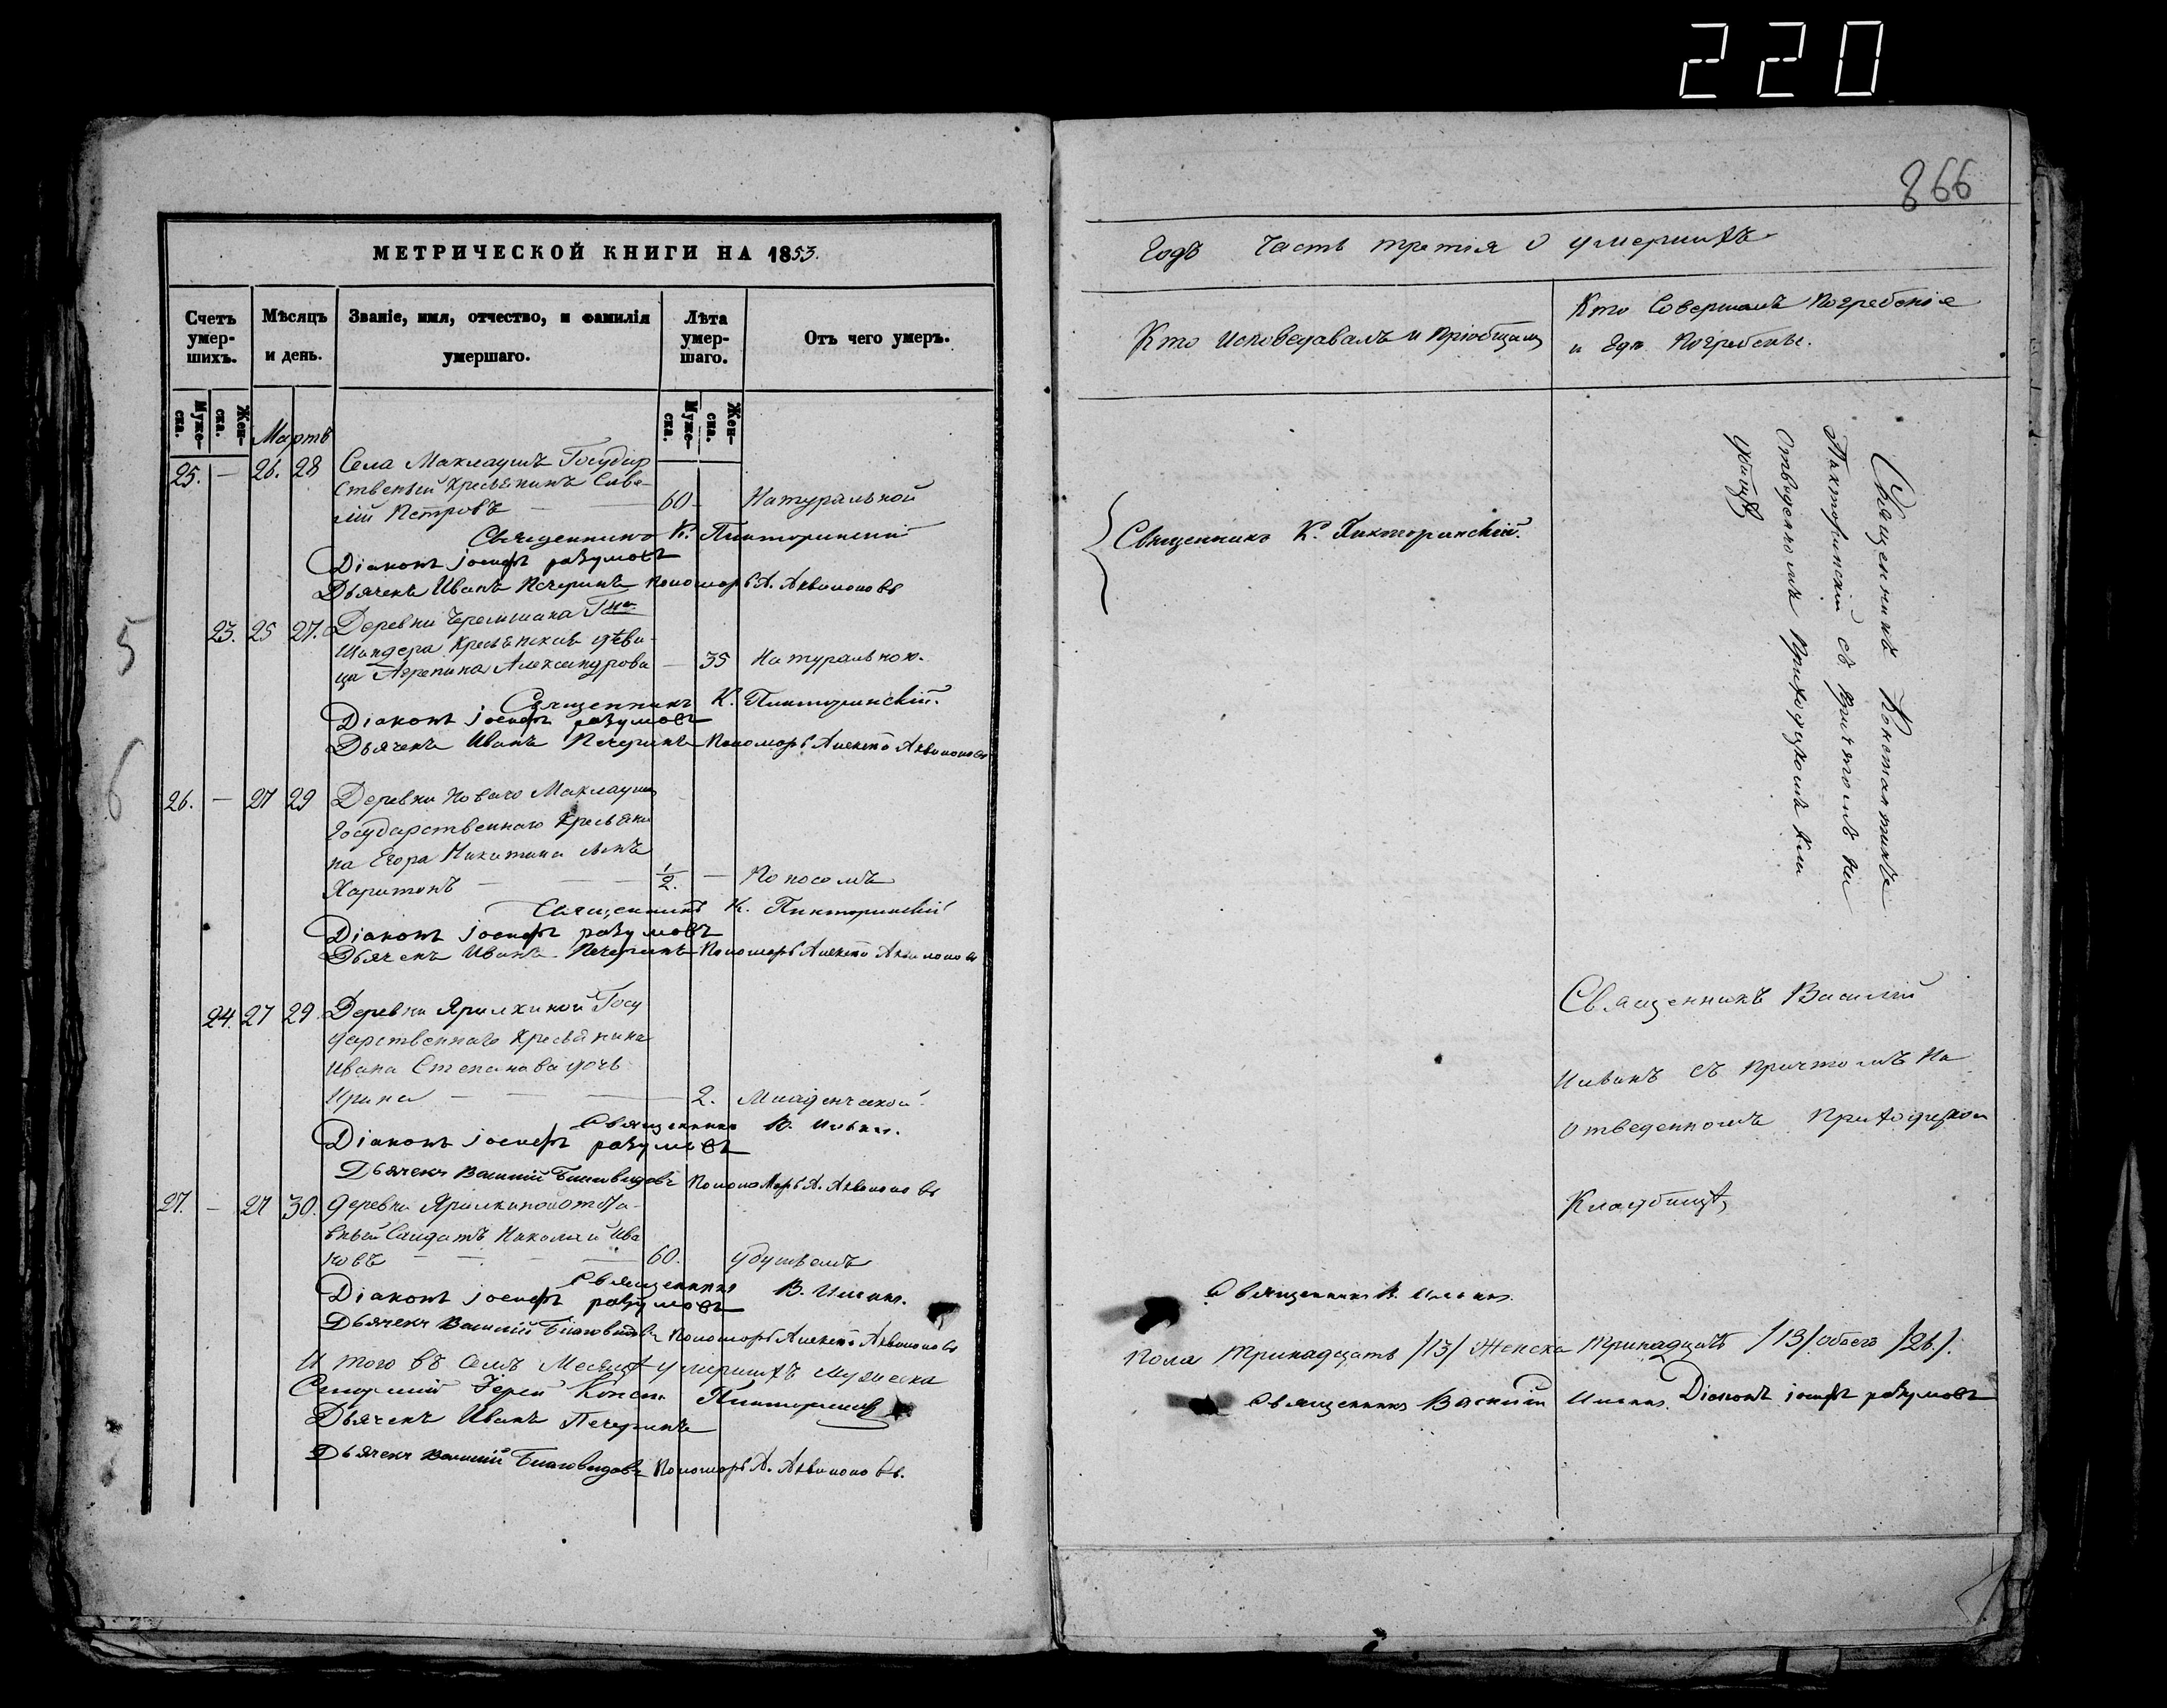 220
866
МЕТРИЧЕСКОЙ КНИГИ НА 1853.
Счетъ умер-шихъ.
Мѣсяцъ и день.
Званіе, имя, отчество, и фамилія умершаго.
Лѣта умер-шаго.
Отъ чего умеръ.
Муже-ска.
Жен-ска.
Муже-ска.
Жен-ска.
Мартъ
25. — 26. 28 Села Маклаушъ Государ
ственный Крестьянинъ Саве-
лій Петровъ — 60 — Натуральной
Священникъ К. Пикторинскій
Діаконъ іосифъ разумовъ
Дьячекъ Иванъ Печеринъ Пономарь А. Аквилоновъ
5
23. 25 27. Деревни Черемшана Гна
Шандера Крестьянская дѣви-
ца Агрепина Александрова — 35 Натуральною.
Священникъ К. Пикторинскій.
Діаконъ іосифъ разумовъ
Дьячекъ Иванъ Печеринъ Пономарь Алексѣй Аквилоновъ
6
26. — 27 29 Деревни Новаго Маклауша
Государственнаго Крестьяни
на Егора Никитина сынъ
Харитонъ — 1/2. — Поносомъ
Священникъ К. Пикторинскій
Діаконъ іосифъ разумовъ
Дьячекъ Иванъ Печеринъ Пономарь Алексѣй Аквилоновъ
24. 27 29. Деревни Ярилкиной Госу
дарственнаго Крестьянина
Ивана Степанова дочь
Ирина — 2. Младенческой
Священникъ В. Ильинъ.
Діаконъ іосифъ разумовъ
Дьячекъ Василій Благовидовъ Пономарь А. Аквилоновъ
27. — 27 30. Деревни Ярилкиной отста-
вный Салдатъ Николай Ива
новъ — 60. удушьемъ
Священникъ В. Ильинъ.
Діаконъ іосифъ разумовъ
Дьячекъ Василій Благовидовъ Пономарь Алексѣй Аквилоновъ
И того въ семъ Месяцѣ умершихъ мужеска
Іерей Конст. Пикторинскій
Дьячекъ Иванъ Печеринъ
Дьячекъ Василій Благовидовъ Пономарь А. Аквилоновъ.
Годъ Часть третія о умершихъ
Кто исповедавалъ и пріобщалъ
Кто Совершалъ Погребеніе
и Гдѣ Погребены.
Священникъ К. Пикторинскій.
Священникъ Константинъ
Пикторинскій съ причтомъ на
отведенномъ приходскомъ кла
дбищѣ
Священникъ Василій
Ильинъ съ Причтомъ На
отведенномъ Приходском
Кладбищѣ
Священникъ В. Ильинъ.
пола тринадцать /13/ Женска тринадцать /13/ обоего /26/.
Священникъ Василій Ильинъ. Діаконъ іосифъ разумовъ